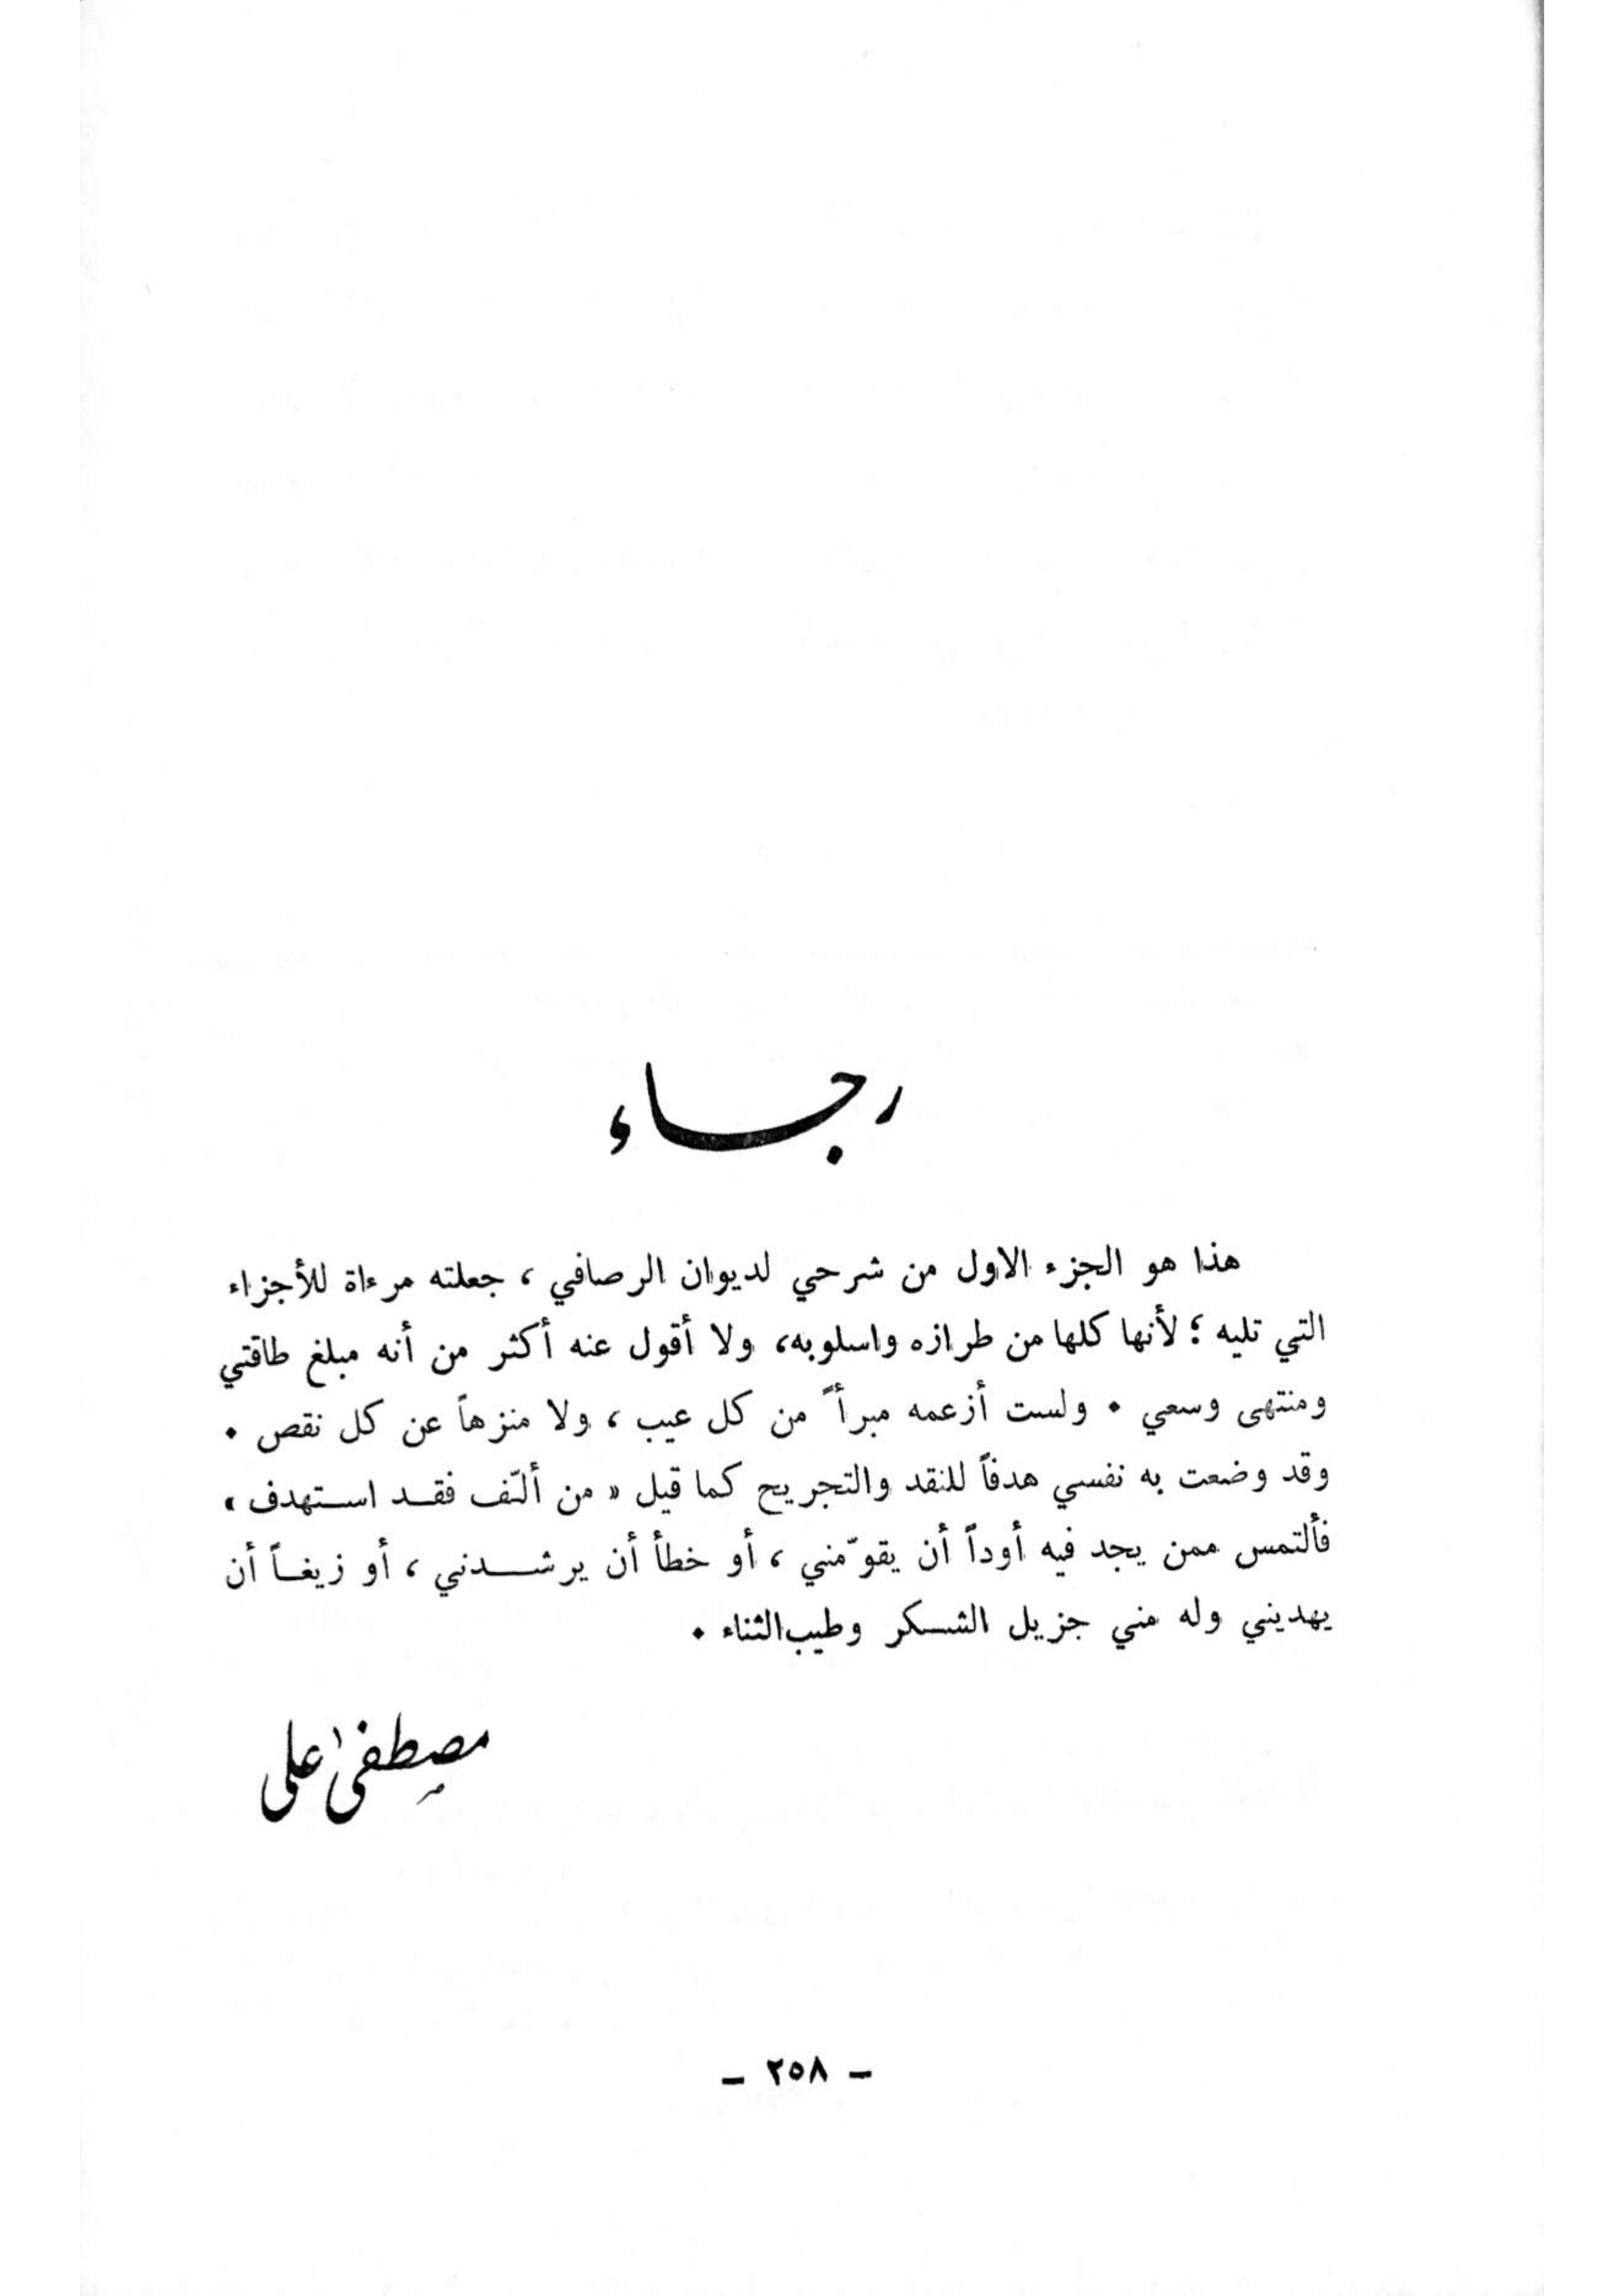 رجاء
هذا هو الجزء الاول من شرحي لديوان الرصافي ، جعلته مرءاة للأجزاء
التي تليه ؛ لأنها كلها من طرازه واسلوبه، ولا أقول عنه أكثر من أنه مبلغ طاقتي
ومنتهى وسعي . ولست أزعمه مبرأً من كل عيب ، ولا منزهاً عن كل نقص .
وقد وضعت به نفسي هدفاً للنقد والتجريح كما قيل « من ألّف فقد استهدف ،
فألتمس ممن يجد فيه أوداً أن يقوّمني ، أو خطأ أن يرشدني ، أو زيغاً أن
يهديني وله مني جزيل الشكر وطيب الثناء .
مصطفى علي
- ٢٥٨ -